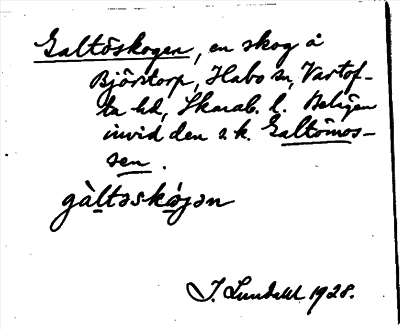 Galtöskogen, en skog å
Björstorp, Habo sn, Vartof-
ta hd, Skarab. l. Belägen
invid den s.k. Galtömos-
sen.
gàltəskójən
J. Lundahl 1928.